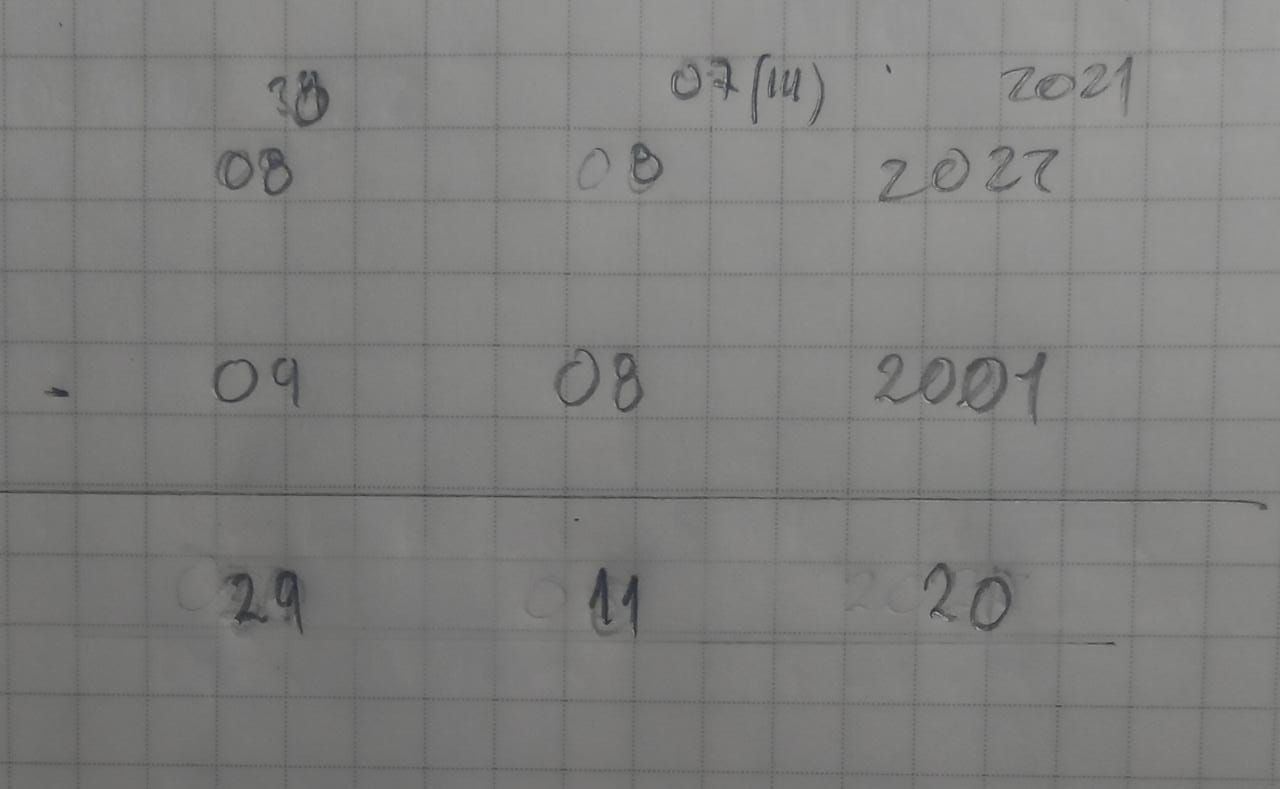 38 07(14) 2021
08 08 2022
- 09 08 2001
29 11 20